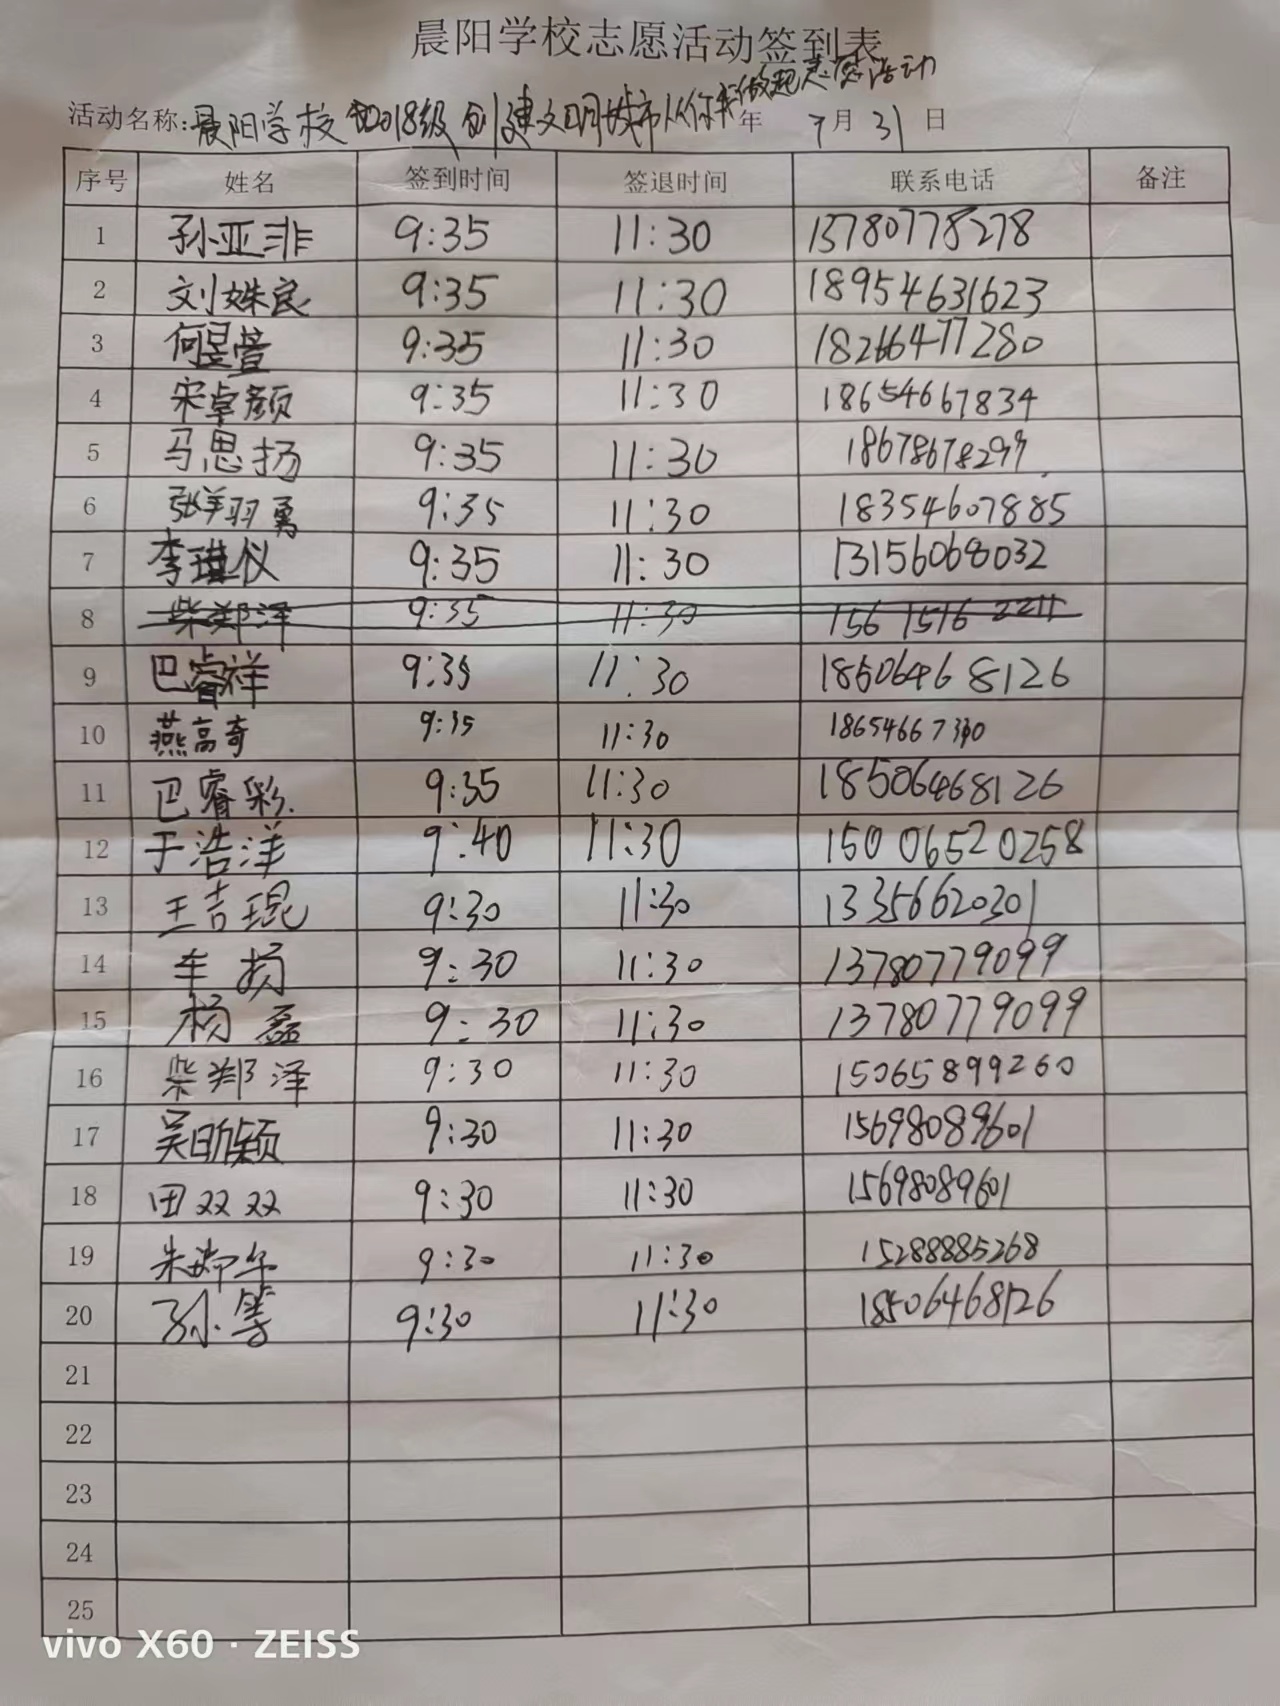 晨阳学校志愿活动签到表
活动名称:晨阳学校2018级创建文明城市从你我做起志愿活动 年 7月31日
序号 姓名 签到时间 签退时间 联系电话 备注
1 孙亚非 9:35 11:30 13780778278
2 刘姝良 9:35 11:30 18954631623
3 何昱萱 9:35 11:30 18266477280
4 宋卓颜 9:35 11:30 18654667834
5 马思扬 9:35 11:30
6 张羽勇 9:35 11:30 18354607885
7 李琪仪 9:35 11:30 13156068032
8 柴郑泽 9:35 11:30 156 1516 2211
9 巴睿祥 9:35 11:30 18506468126
10 燕高奇 9:35 11:30
11 巴睿彩 9:35 11:30 18506468126
12 于浩洋 9:40 11:30 15006520258
13 王吉琨 9:30 11:30 13356620301
14 车扬 9:30 11:30 13780779099
15 杨磊 9:30 11:30 13780779099
16 柴郑泽 9:30 11:30 15065899260
17 吴昕颖 9:30 11:30 15698089601
18 田双双 9:30 11:30 15698089601
19 朱 9:30 11:30 15288885268
20 孙等 9:30 11:30 18506468126
21
22
23
24
25
vivo X60 · ZEISS